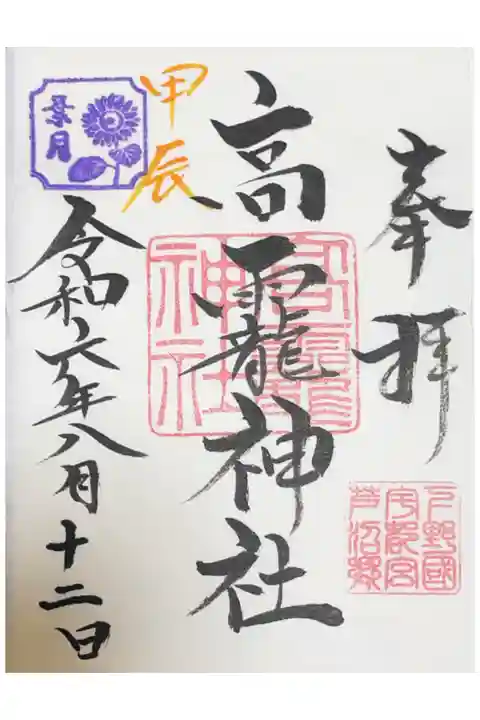 奉拝
下野國
宇都宮
芦沼
高靇神社
神社
甲辰
葉月
令和六年八月十二日